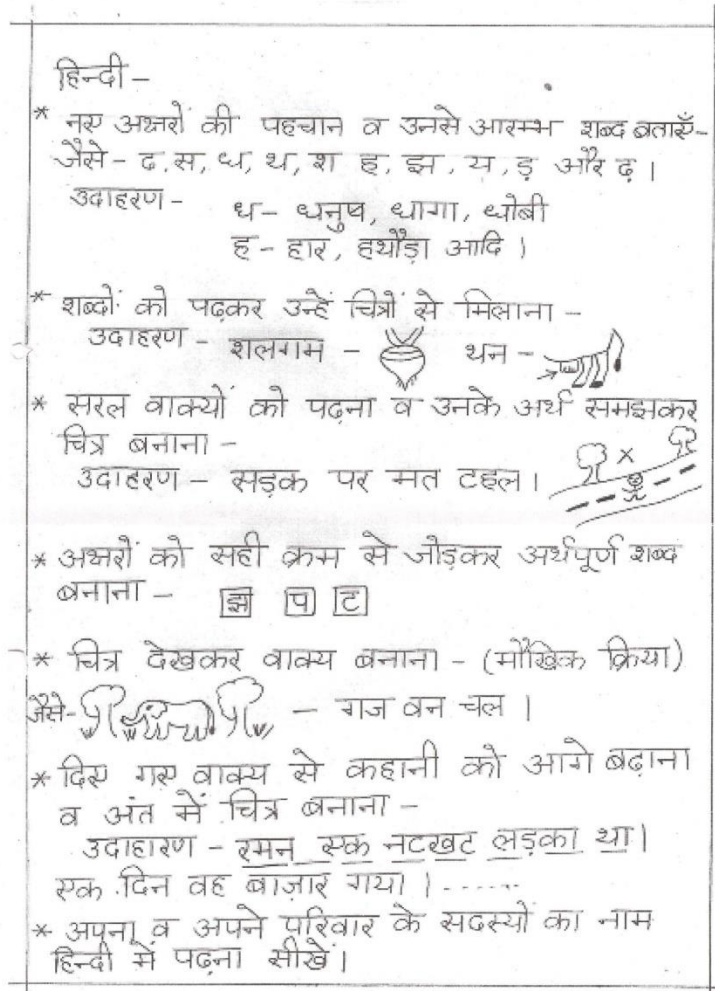 हिन्दी –
* नए अक्षरों की पहचान व उनसे आरम्भ शब्द बताएँ-
जैसे - ढ, स, ध, थ, श ह, झ, य, ड़ और ढ़ ।
उदाहरण - ध - धनुष, धागा, धोबी
ह - हार, हथौड़ा आदि ।
* शब्दों को पढकर उन्हें चित्रों से मिलाना -
उदाहरण - शलगम - थन -
* सरल वाक्यों को पढ़ना व उनके अर्थ समझकर
चित्र बनाना -
उदाहरण - सड़क पर मत टहल ।
* अक्षरों को सही क्रम से जोड़कर अर्थपूर्ण शब्द
बनाना - झ प ट
* चित्र देखकर वाक्य बनाना - (मौखिक क्रिया)
जैसे- - गज वन चल ।
* दिए गए वाक्य से कहानी को आगे बढ़ाना
व अंत में चित्र बनाना -
उदाहारण - रमन एक नटखट लड़का था ।
एक दिन वह बाज़ार गया । ......
* अपना व अपने परिवार के सदस्यों का नाम
हिन्दी में पढ़ना सीखें ।